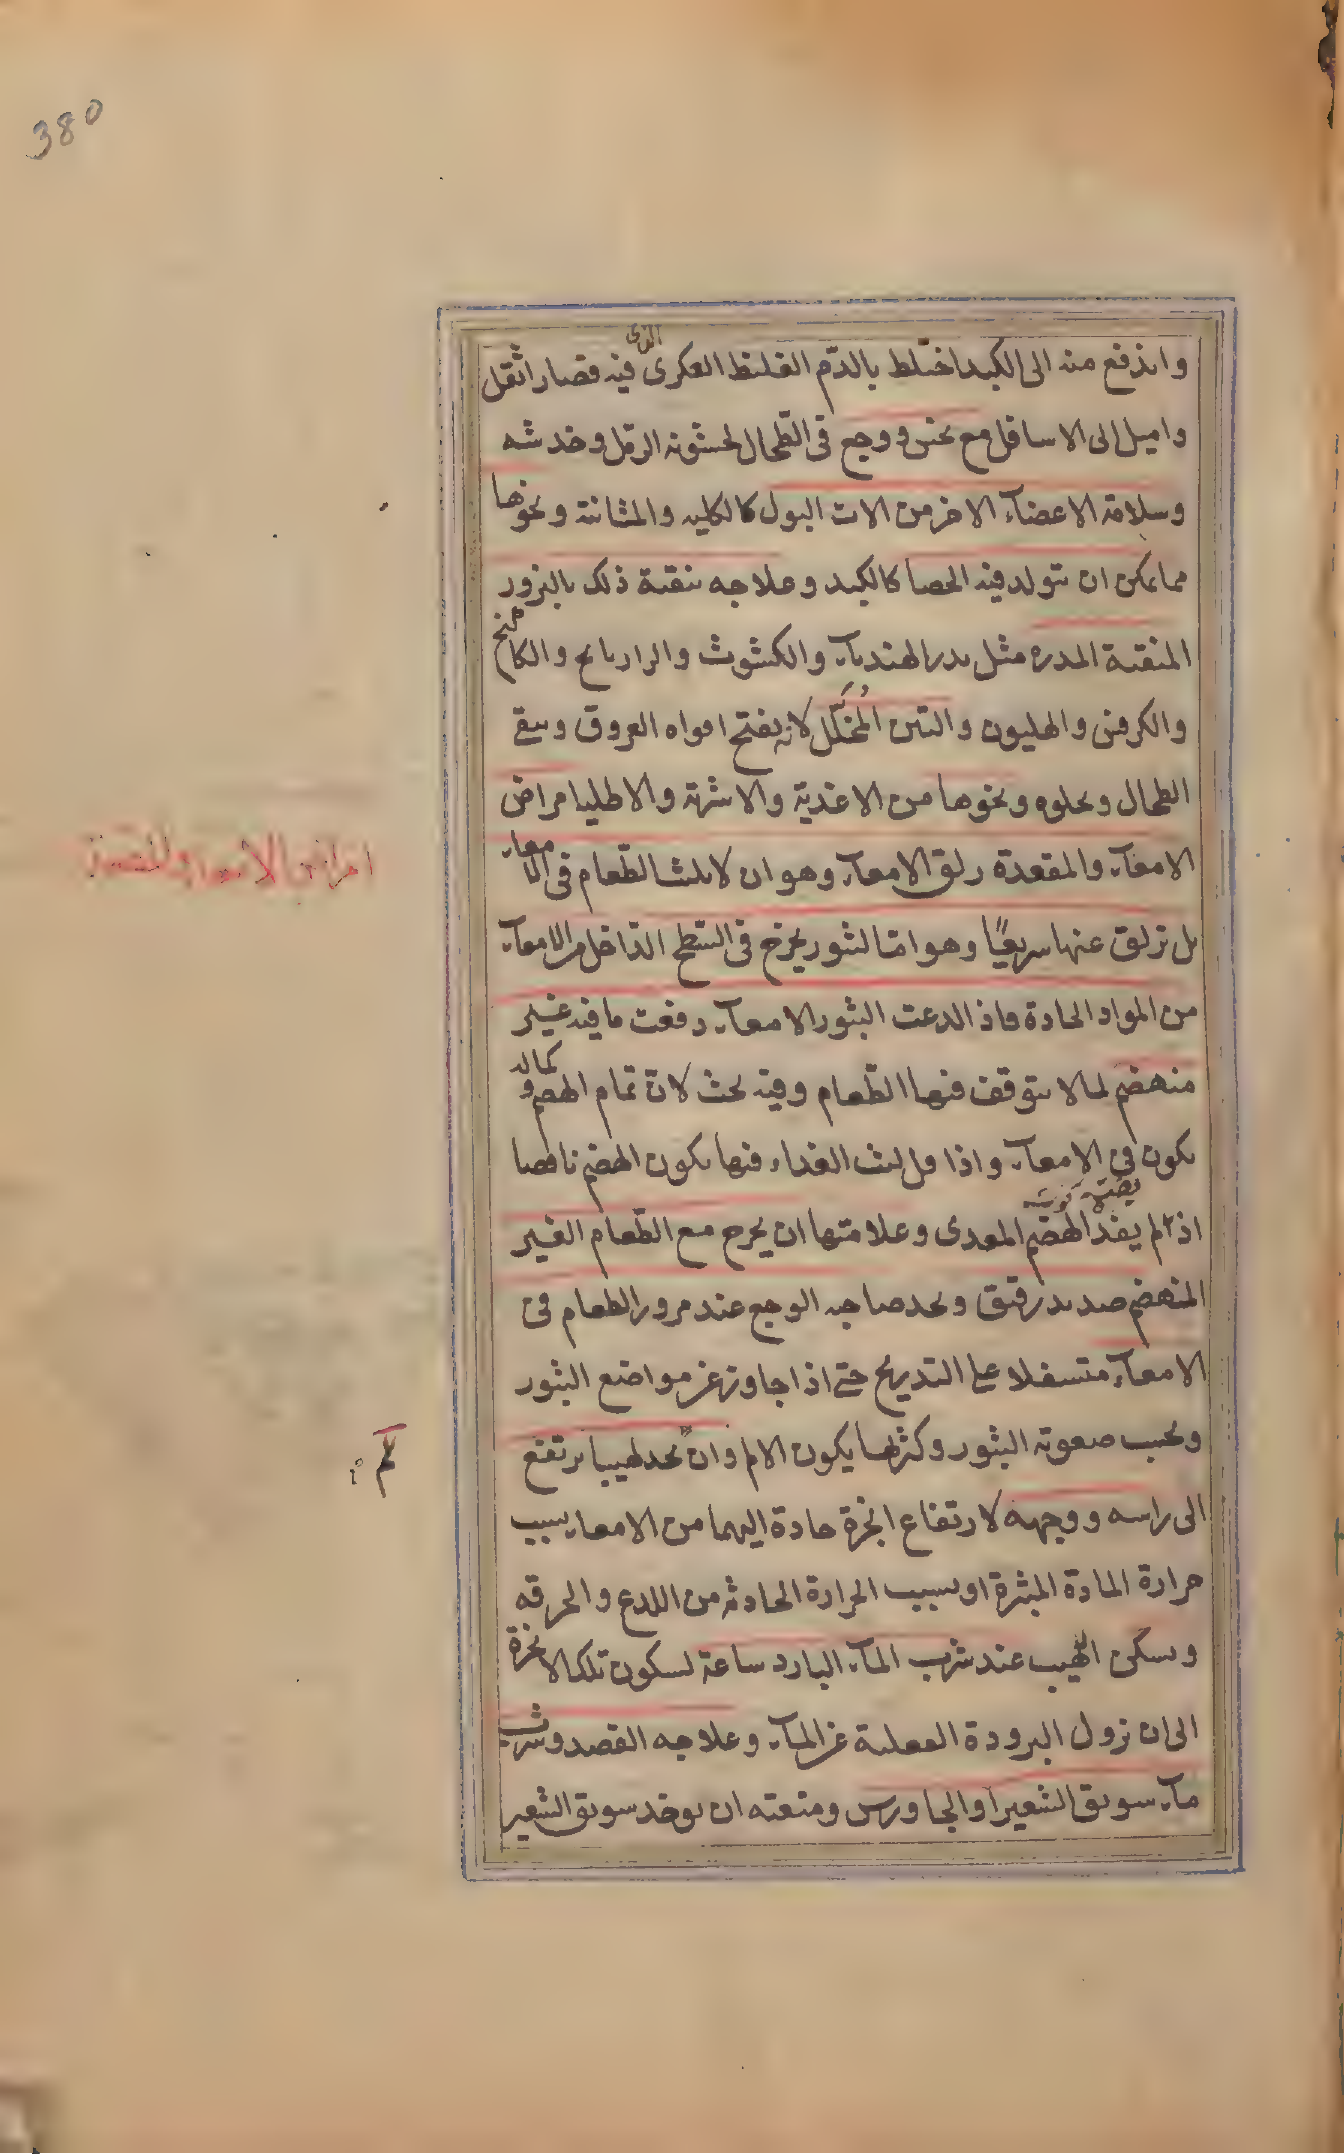 380
واندفع منه الى الكبد اختلط بالدّم الغليظ العكرى الذى فيه فصار اثقل
واميل الى الاسافل مع نخس ووجع فى الطّحال لخشونة الرمل وخدشه
وسلامة الاعضاء الاخر من الات البول كالكليه والمثانة ونحوها
مما يمكن ان يتولد فيه الحصا كالكبد وعلاجه تنقية ذلك بالبزور
المنقية المدره مثل بذر الهندباء والكشوث والرازيانج والكاكنج
والكرفس والهليون والتين المُخلَّل لانه يفتح افواه العروق وينقى
الطحال ويجلوه ونحوها من الاغذية والاشربة والاطليا امراض
الامعاء والمقعدة زلق الامعاء وهو ان لا يلبث الطّعام فى الامعاء
بل تزلق عنها سريعًا وهو امّا لبثور يخرج فى السّطح الدّاخل من الامعاء
من المواد الحادة فاذا لدعت البثور الامعاء دفعت ما فيه غير
منهضم لما لا يتوقف فيها الطّعام وفيه بحث لانّ تمام الهضم وكماله
يكون فى الامعاء واذا قل لبث الغذاء فيها يكون الهضم ناقصا
اذ لم يفد الهضم المعدى وعلامتها ان يخرج مع الطّعام الغير
المنهضم صديد رقيق ويجد صاحبه الوجع عند مرور الطعام فى
الامعاء متسفلا على التدريج حتى اذا جاوز عن مواضع البثور
وبحسب صعوبة البثور وكثرتها يكون الالم وان يجد لهيبا يرتفع
الى راسه ووجهه لارتفاع ابخرة حادة اليهما من الامعاء بسبب
حرارة المادة المبثرة او بسبب الحرارة الحادثه من اللدع والحرقه
ويسكن اللهيب عند شرب الماء البارد ساعة لسكون تلك الابخرة
الى ان تزول البرودة الفعلية عن الماء وعلاجه الفصد وشرب
ماء سويق الشعير او الجاورس وصنعته ان يوخذ سويق الشعير
امراض الامعاء والمقعدة